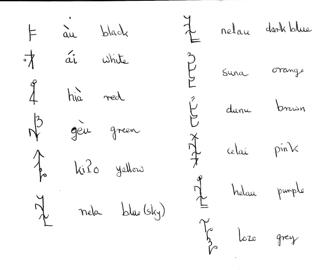 àu black
ái white
hià red
gèù green
kiʔo yellow
nela blue (sky)
nelau dark blue
suna orange
danu brown
celai pink
helau purple
lozo grey